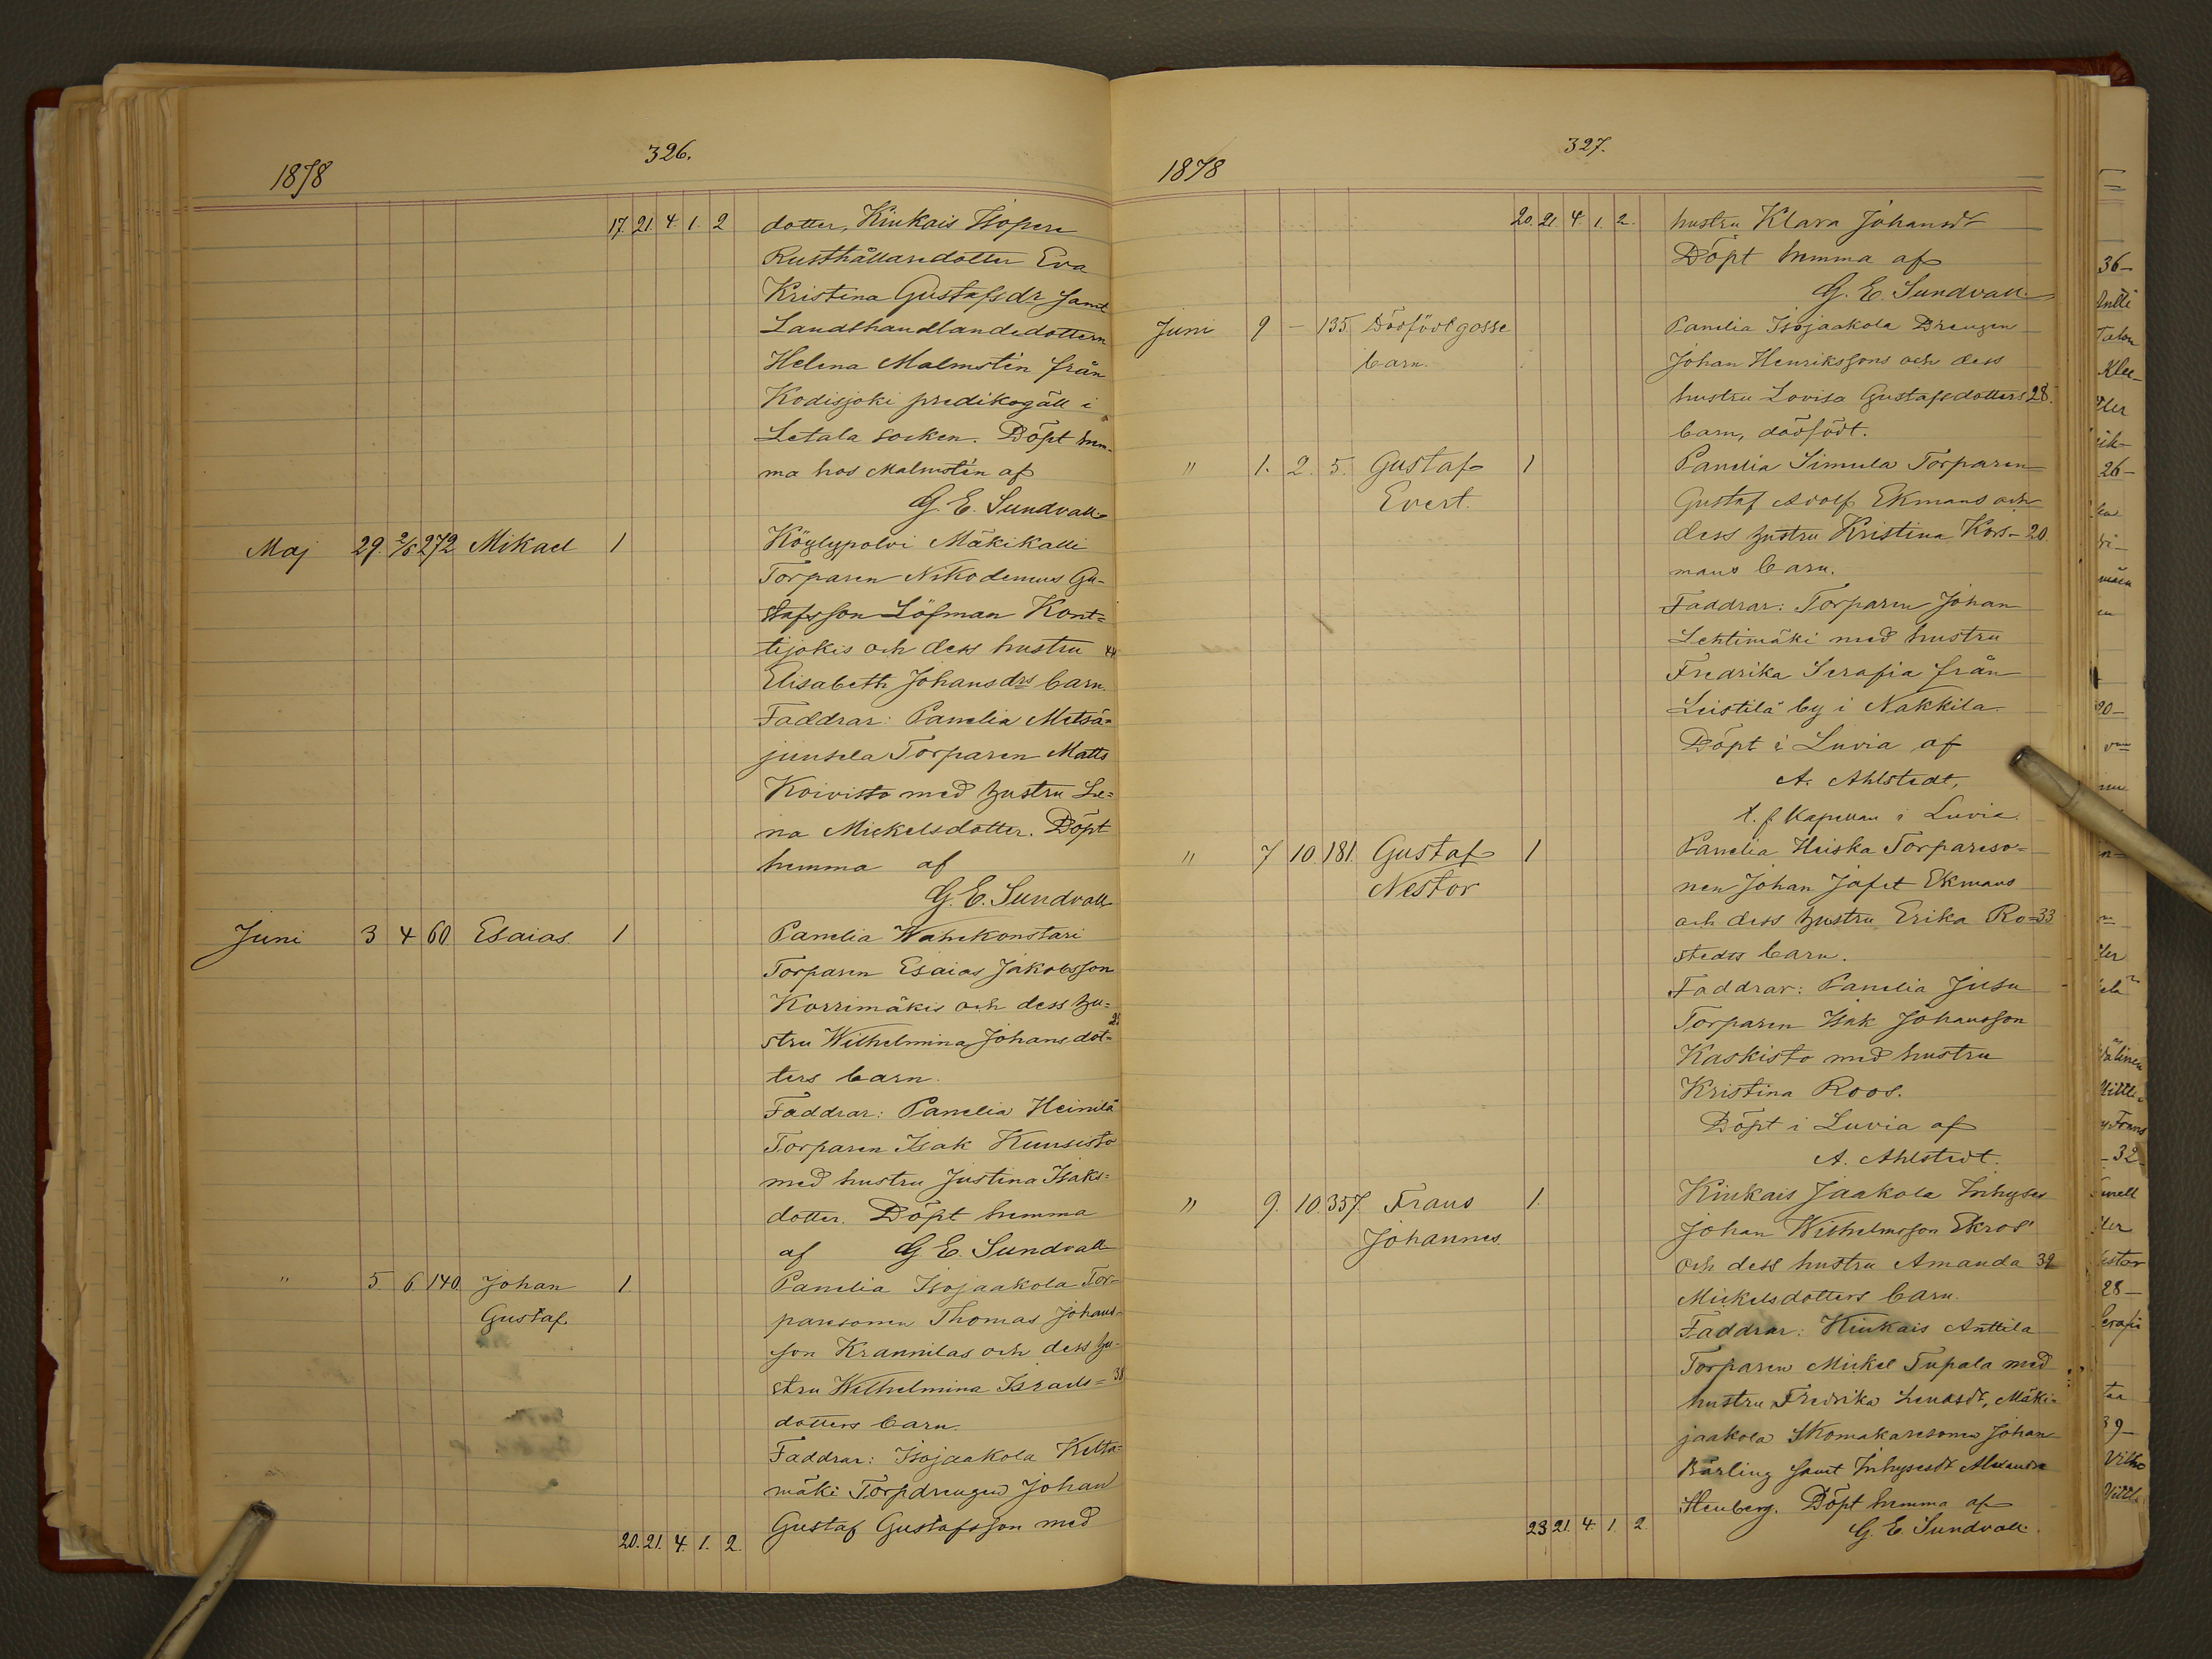 326.
1878
17 21. 4. 1. 2 dotter, Kiukais Isopere
Rusthållaredotter Eva
Kristina Gustafsdr samt
Landthandlandedottern
Helena Malmstén från
Kodisjoki predikogäll i
Letala socken. Döpt hem-
ma hos Malmstén af
G. E. Sundvall
Maj 29. 2/6 272 Mikael 1 Köylypolvi Mäkikalli
Torparen Nikodemus Gu-
stafsson Löfman Kont=
tijokis och dess hustru 44
Elisabeth Johansdrs barn.
Faddrar: Panelia Metsä=
juusela Torparen Matts
Koivisto med hustru Le=
na Mickelsdotter. Döpt
hemma af
G. E. Sundvall
Juni 3 4 60 Esaias 1 Panelia Wähekonstari
Torparen Esaias Jakobsson
Korrimäkis och dess hu=
stru Wilhelmina Johansdot=
ters barn.
Faddrar: Panelia Heinilä
Torparen Isak Kuusisto
med hustru Justina Isaks=
dotter. Döpt hemma
af G. E. Sundvall
" 5. 6 140 Johan 1. Panelia Isojaakola Tor=
Gustaf paresonen Thomas Johans-
son Krannilas och dess hu-
stru Wilhelmina Israels= 38
dotters barn.
Faddrar: Isojaakola Ketta=
mäki Torpdrengen Johan
Gustaf Gustafsson med
20. 21. 4. 1. 2.
327.
1878
20. 21. 4. 1. 2. hustru Klara Johansdr
Döpt hemma af
G. E. Sundvall.
Juni 9 — 135. Dödfödt gosse Panelia Isojaakola Drengen
barn. Johan Henrikssons och dess
hustru Lovisa Gustafsdotters 28.
barn, dödfödt.
" 1. 2. 5. Gustaf 1 Panelia Simula Torparen
Evert. Gustaf Adolf Ekmans och
dess hustru Kristina Kors- 20.
mans barn.
Faddrar: Torparen Johan
Lehtimäki med hustru
Fredrika Serafia från
Leistilä by i Nakkila.
Döpt i Luvia af
A. Ahlstedt,
t. f. Kapellan i Luvia.
" 7 10 181. Gustaf 1 Panelia Heiska Torpareso=
Nestor nen Johan Jafet Ekmans
och dess hustru Erika Ro= 33
stedts barn.
Faddrar: Panelia Jusu
Torparen Isak Johansson
Kaskisto med hustru
Kristina Roos.
Döpt i Luvia af
A. Ahlstedt.
" 9. 10. 357. Frans 1. Kiukais Jaakola Inhyses
Johannes. Johan Wilhelmsson Ekros'
och dess hustru Amanda 32
Mickelsdotters barn.
Faddrar: Kiukais Anttila
Torparen Mickel Tupala med
hustru Fredrika , Mäki=
jaakola Skomakaresonen Johan
Bärling samt Inhysesdr Alexandra
Stenberg. Döpt hemma af
23 21. 4. 1. 2. G. E. Sundvall.